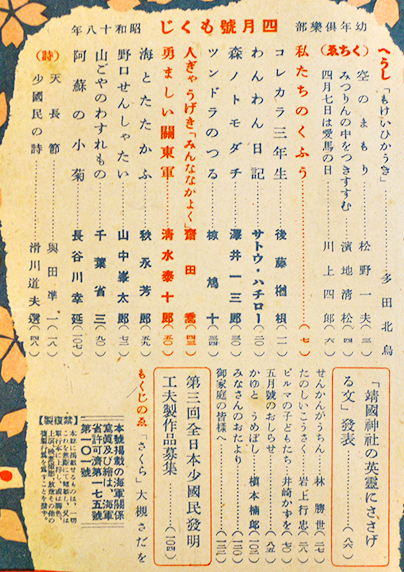 幼年俱樂部 四月號もくじ 昭和十八年
へうし「もけいひかうき」………多田北烏
(くちゑ)
空のまもり………松野一夫(三)
みつりんの中をつきすすむ……濱地清松(四)
四月七日は愛馬の日………川上四郎(六)
私たちのくふう………(七)
コレカラ三年生………後藤楢根(二)
わんわん日記………サトウ・ハチロー(三〇)
森ノトモダチ………澤井一三郎(三)
ツンドラのつる………椋鳩十(三四)
人ぎやうげき「みんななかよく」……齋田喬(四三)
勇ましい關東軍………清水泰十郎(五三)
海とたたかふ………秋永芳郎(五九)
野口せんしやたい………山中峯太郎(七三)
山ごやのわすれもの………千葉省三(九二)
阿蘇の小菊………長谷川幸延(一〇七)
(詩)
天長節………與田準一(一八)
少國民の詩………滑川道夫選(四八)
「靖國神社の英靈にささげる文」發表………(八六)
せんかんがうちん………林勝世(三七)
たのしいこうさく………岩上行忠(三八)
ビルマの子どもたち………井崎かずを(七〇)
五月號のおしらせ………(八五)
かゆと うめぼし………槇本楠郎(一〇六)
みなさんのおたより………
御家庭の皆樣へ………
第三回全日本少國民發明工夫製作品募集………(一〇四)
もくじのゑ「さくら」大槻さだを
本號掲載の海軍關係
寫眞及び繪は、海軍
省許可濟第一七五號
第一〇一號
【禁複製】